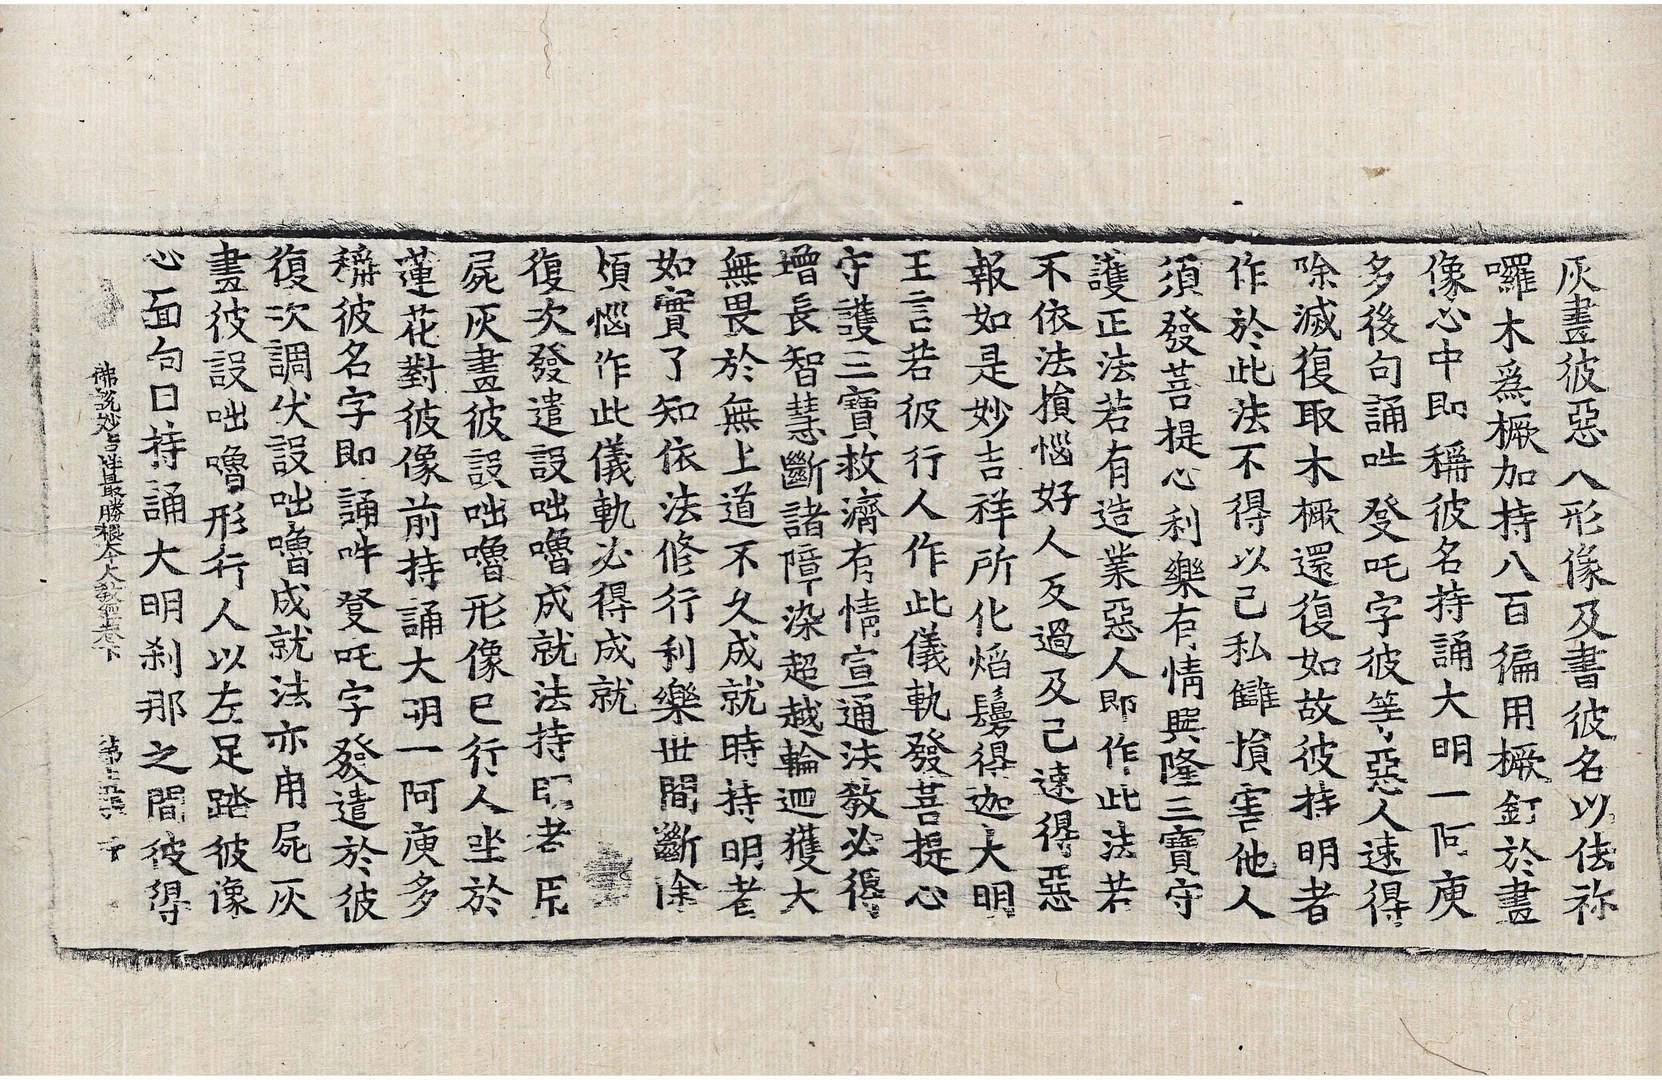 灰畫彼惡人形像及書彼名以佉祢
囉木爲橛加持八百徧用橛釘於畫
像心中即稱彼名持誦大明一阿庾
多後句誦吽發吒字彼等惡人速得
除滅復取木橛還復如故彼持明者
作於此法不得以己私讎損害他人
須發菩提心利樂有情興隆三寶守
護正法若有造業惡人即作此法若
不依法損惱好人反過及己速得惡
報如是妙吉祥所化焰鬘得迦大明
王言若彼行人作此儀軌發菩提心
守護三寶救濟有情宣通法教必得
增長智慧斷諸障染超越輪迴獲大
無畏於無上道不久成就時持明者
如實了知依法修行利樂世間斷除
煩惱作此儀軌必得成就
復次發遣設咄嚕成就法持明者用
屍灰畫彼設咄嚕形像已行人坐於
蓮花對彼像前持誦大明一阿庾多
稱彼名字即誦吽發吒字發遣於彼
復次調伏設咄嚕成就法亦用屍灰
畫彼設咄嚕形行人以左足踏彼像
心面句日持誦大明刹那之間彼得
佛說妙吉祥最勝根本大教經卷下 第十五張